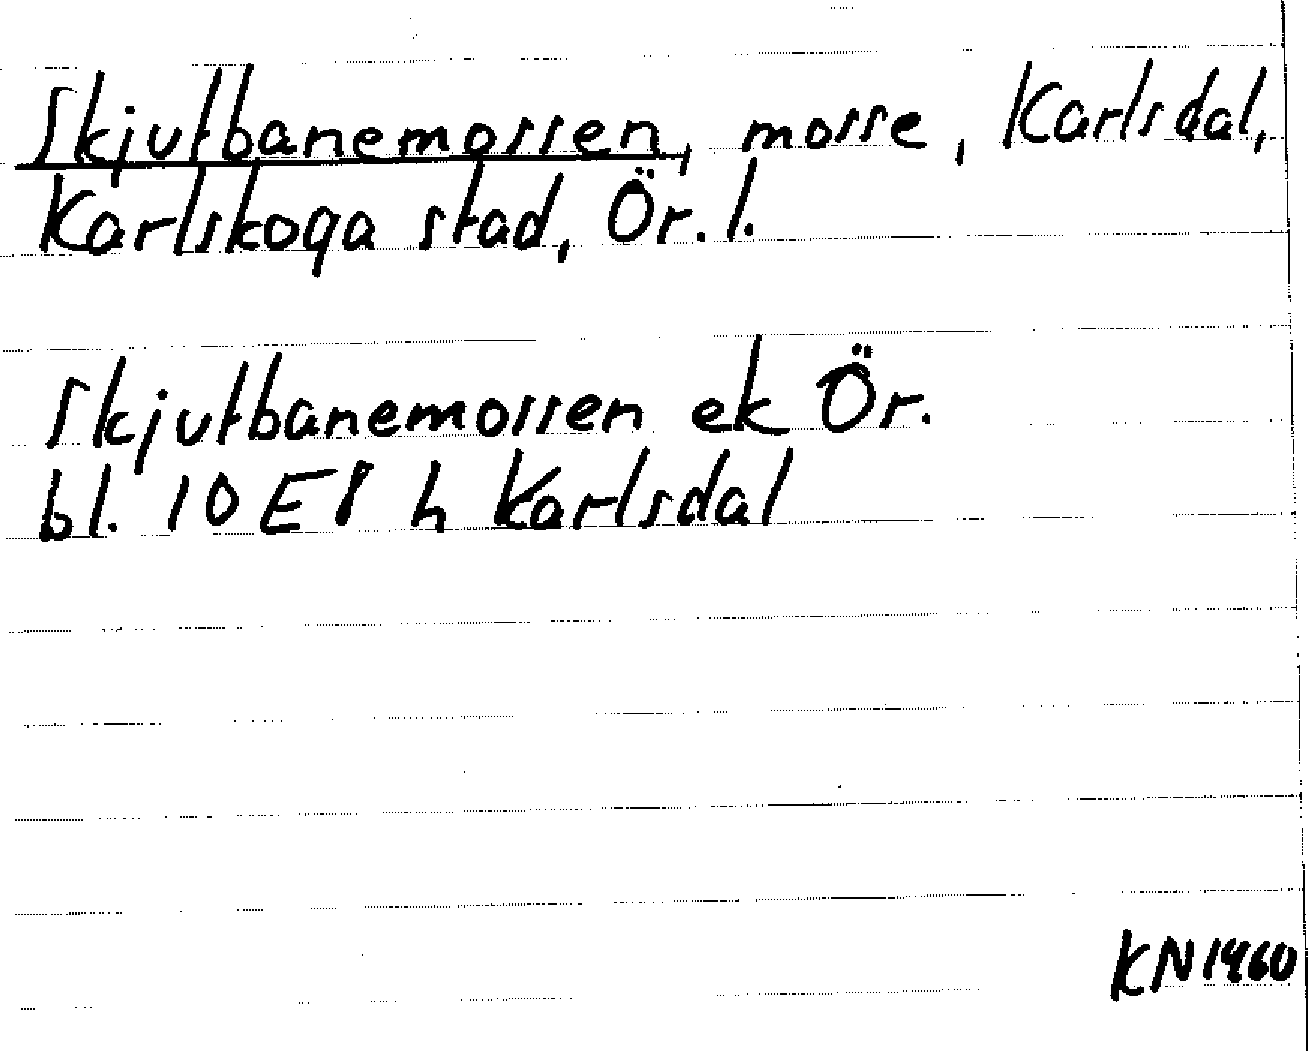 Skjutbanemossen, mosse, Karlsdal,
Karlskoga stad, Ör. l.
Skjutbanemossen ek Ör.
bl. 10 E8 h Karlsdal
KN 1960